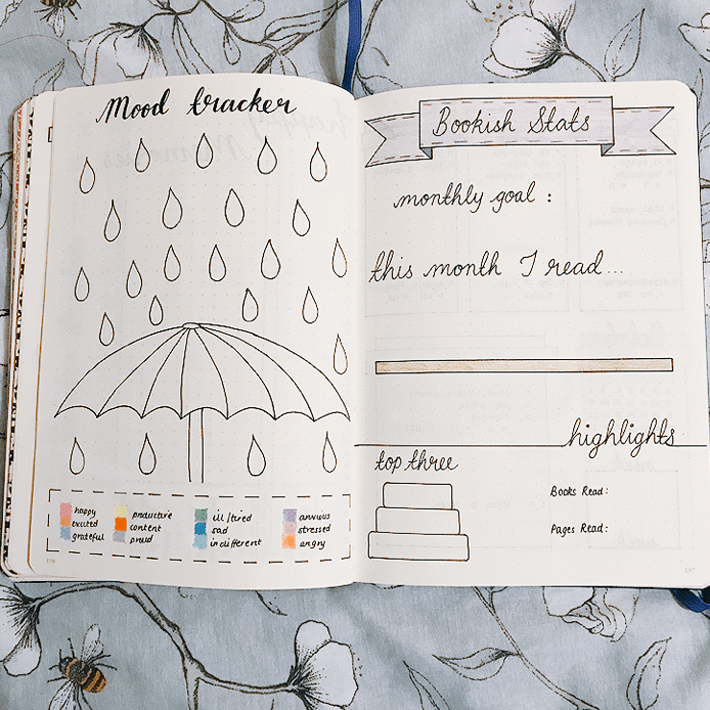 Mood tracker
happy
excited
grateful
productive
content
proud
ill/tired
sad
indifferent
anxious
stressed
angry
Bookish Stats
monthly goal :
this month I read...
highlights
top three
Books Read:
Pages Read: